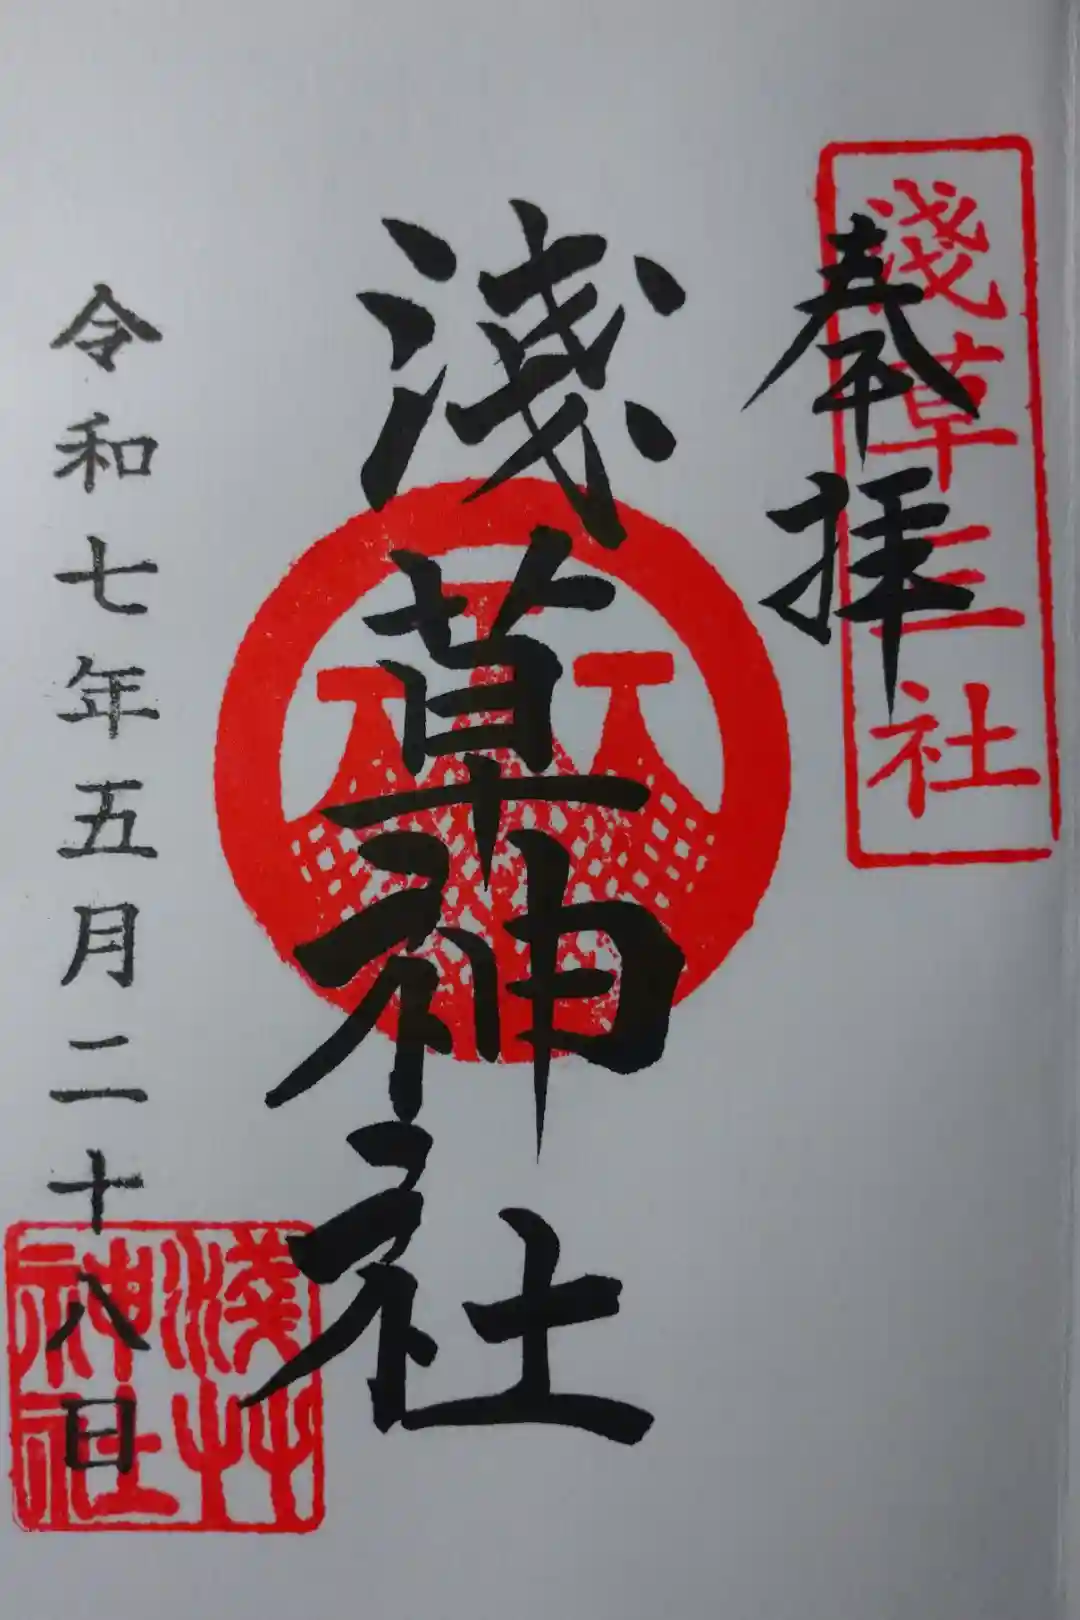 淺草三社
奉拝
浅草神社
令和七年五月二十八日
淺草
神社